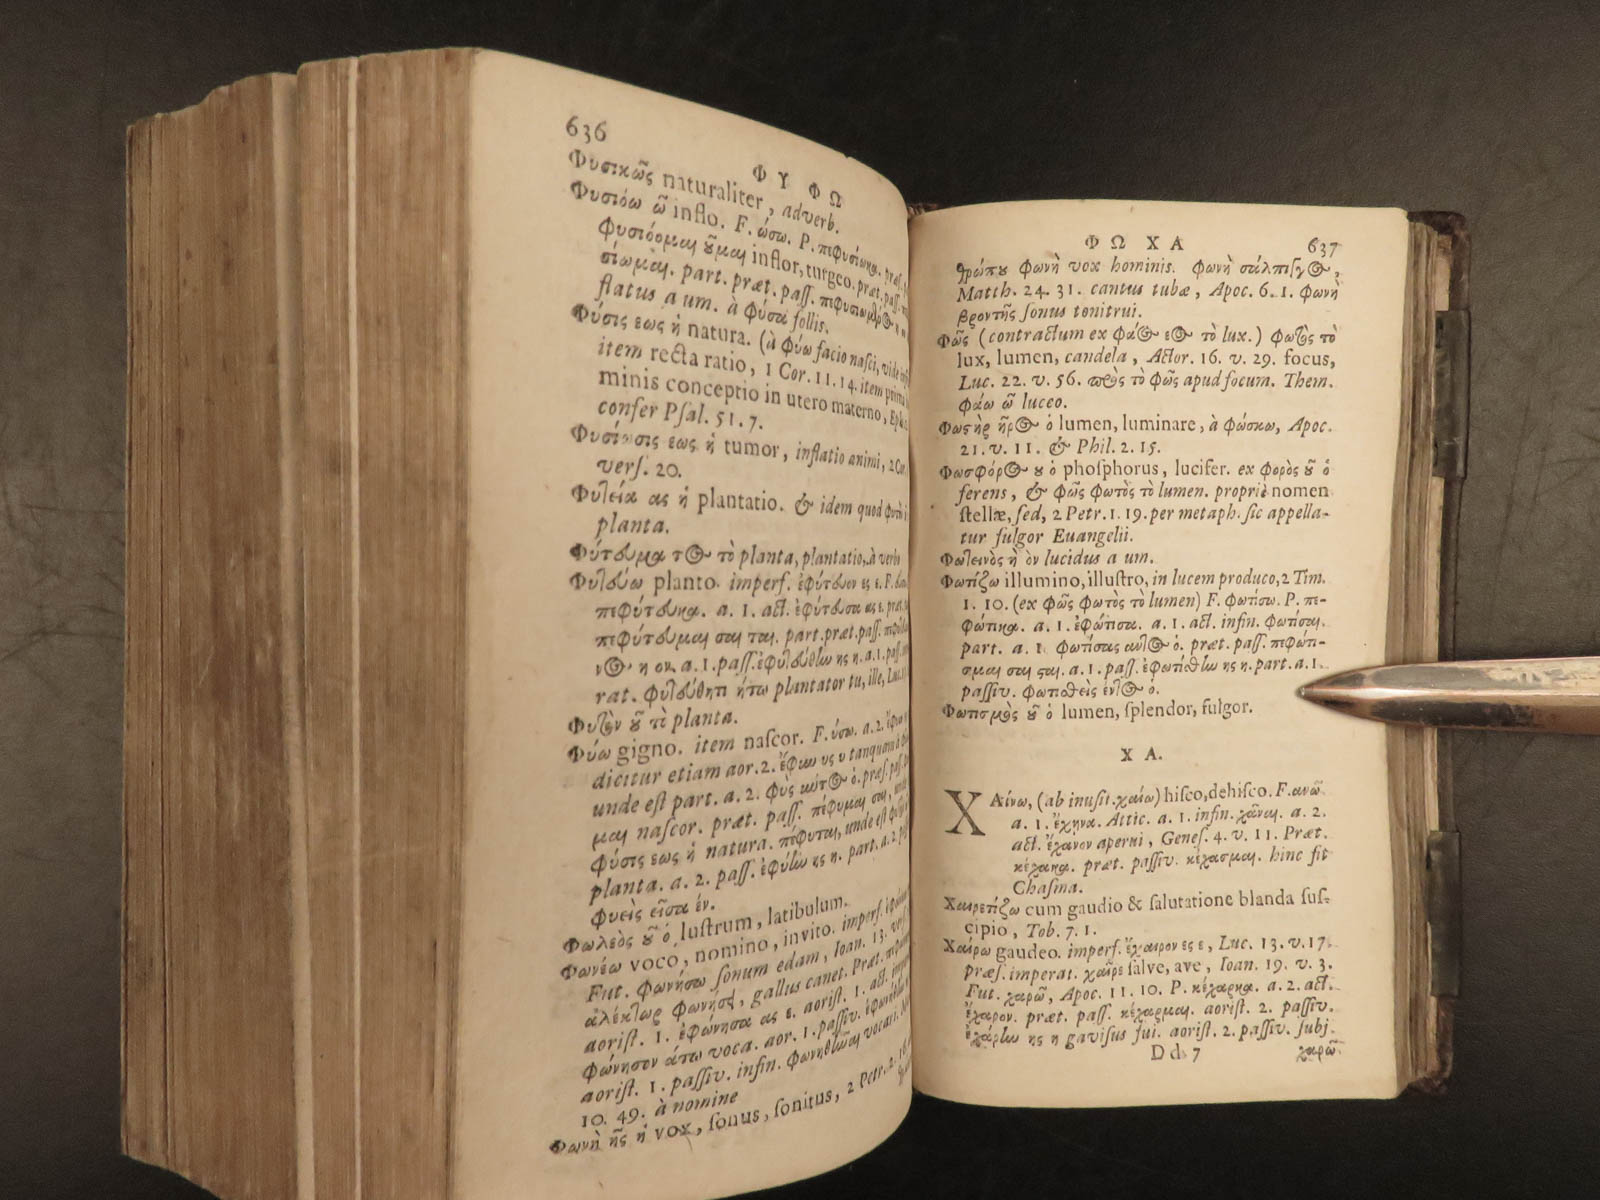 636
Φ Υ Φ Ω
Φυσικῶς naturaliter, adverb.
Φυσιόω ῶ inflo. F. ώσω. P. πεφυσίωκα. præs.
Φυσιόομαι οῦμαι inflor, turgeo. præt. pass.
σίωμαι. part. præt. pass.
flatus a um. à φύσα follis.
Φύσις εως ἡ natura. (à φύω facio nasci, vide
item recta ratio, 1 Cor. 11. 14. item
minis conceptio in utero materno,
confer Psal. 51. 7.
Φυσίωσις εως ἡ tumor, inflatio animi, 2 Cor.
vers. 20.
Φυτεία ας ἡ plantatio. & idem quod
planta.
Φύτευμα τος τὸ planta, plantatio, à verbo
Φυτεύω planto. imperf. ἐφύτευον ες ε. F.
πεφύτευκα. a. 1. act. ἐφύτευσα ας ε. præt.
πεφύτευμαι σαι ται. part. præt. pass.
νος η ον. a. 1. pass. ἐφυτεύθην ης η. a. 1. pass.
rat. φυτεύθητι ήτω plantator tu, ille, Luc.
Φυτὸν οῦ τὸ planta.
Φύω gigno. item nascor. F. ύσω. a. 2.
dicitur etiam aor. 2. ἔφυν υς υ tanquam à
unde est part. a. 2. φὺς ὁ. præs. pass.
μαι nascor. præt. pass. πέφυμαι σαι,
φύσις εως ἡ natura. πέφυται, unde est
planta. a. 2. pass. ἐφύην ης η. part. a. 2.
φυεὶς εῖσα έν.
Φωλεὸς οῦ ὁ lustrum, latibulum.
Φωνέω voco, nomino, invito. imperf.
Fut. φωνήσω sonum edam, Ioan. 13.
ἀλέκτωρ φωνήσει, gallus canet. Præt.
aorist. 1. ἐφώνησα ας ε. aorist. 1. act.
φώνησον άτω voca. aor. 1. passiv.
aorist. 1. passiv. infin. φωνηθῆναι vocari.
10. 49. à nomine
Φωνὴ ῆς ἡ vox, sonus, sonitus, 2 Petr. 2. 16.
Φ Ω Χ Α 637
θρώπου φωνὴ vox hominis. φωνὴ σάλπιγγος,
Matth. 24. 31. cantus tubæ, Apoc. 6. 1. φωνὴ
βροντῆς sonus tonitrui.
Φῶς (contractum ex φάος εος τὸ lux.) φωτὸς τὸ
lux, lumen, candela, Actor. 16. v. 29. focus,
Luc. 22. v. 56. πρὸς τὸ φῶς apud focum. Them.
φάω ῶ luceo.
Φωστὴρ ῆρος ὁ lumen, luminare, à φώσκω, Apoc.
21. v. 11. & Phil. 2. 15.
Φωσφόρος ου ὁ phosphorus, lucifer. ex φορὸς οῦ ὁ
ferens, & φῶς φωτὸς τὸ lumen. propriè nomen
stellæ, sed, 2 Petr. 1. 19. per metaph. sic appella-
tur fulgor Euangelii.
Φωτεινὸς ὴ ὸν lucidus a um.
Φωτίζω illumino, illustro, in lucem produco, 2 Tim.
1. 10. (ex φῶς φωτὸς τὸ lumen) F. φωτίσω. P. πε-
φώτικα. a. 1. ἐφώτισα. a. 1. act. infin. φωτίσαι.
part. a. 1. φωτίσας αντος ὁ. præt. pass. πεφώτι-
σμαι σαι σται. a. 1. pass. ἐφωτίσθην ης η. part. a. 1.
passiv. φωτισθεὶς έντος ὁ.
Φωτισμὸς οῦ ὁ lumen, splendor, fulgor.
Χ Α.
ΧΑίνω, (ab inusit. χαίω) hisco, dehisco. F. ανῶ.
a. 1. ἔχηνα. Attic. a. 1. infin. χᾶναι. a. 2.
act. ἔχανον aperui, Genes. 4. v. 11. Præt.
κέχακα. præt. passiv. κέχασμαι. hinc fit
Chasma.
Χαιρετίζω cum gaudio & salutatione blanda sus-
cipio, Tob. 7. 1.
Χαίρω gaudeo. imperf. ἔχαιρον ες ε, Luc. 13. v. 17.
præs. imperat. χαῖρε salve, ave, Ioan. 19. v. 3.
Fut. χαρῶ, Apoc. 11. 10. P. κέχαρκα. a. 2. act.
ἔχαρον. præt. pass. κέχαρμαι. aorist. 2. passiv.
ἐχάρην ης η gavisus fui. aorist. 2. passiv. subj.
Dd 7 χαρῶ